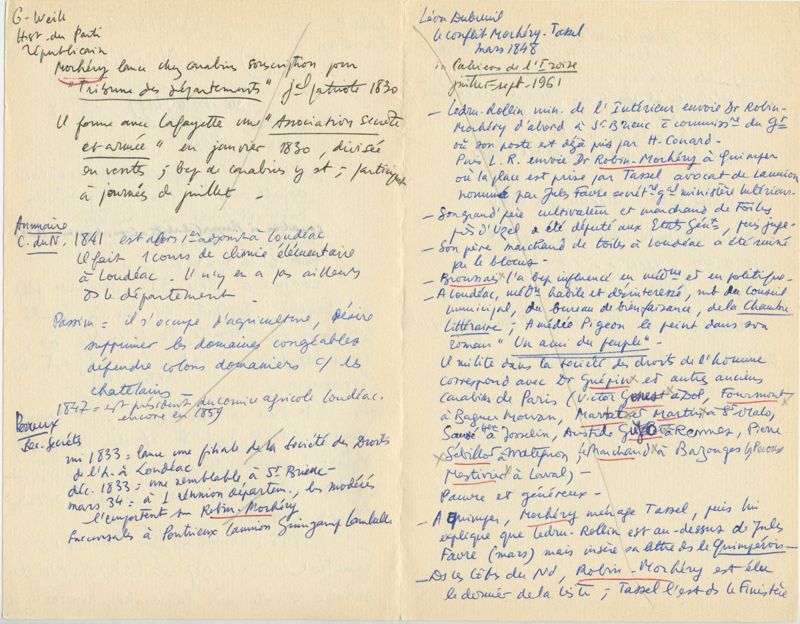 G. Weill
Hist. du Parti
républicain
Morhéry lance chez carabins souscription pour
"Tribune des départements" jal patriote 1830
Il forme avec Lafayette une "Association Secrète
et armée" en janvier 1830, divisée
en ventes ; bcp de carabins y st ; participe
à journées de juillet -
Annuaire
C. du N. 1841 est alors 1er adjoint à Loudéac
Il fait 1 cours de chimie élémentaire
à Loudéac. Il n'y en a pas ailleurs
ds le département -
Passim = il s'occupe d'agriculture, désire
supprimer les domaines congéables
défendre colons domaniers c/ les
chatelains -
1847 = est président du comice agricole Loudéac.
encore en 1859
Perreux
Soc. Secrètes
mi 1833 = lance une filiale de la Société des Droits
de l'h. à Loudéac
déc. 1833 = une semblable à St Brieuc
mars 34 = à 1 réunion départem., les modérés
l'emportent sur Robin-Morhéry
succursales à Pontrieux Lannion Guingamp Lamballe
Léon Dubreuil
le conflit Morhéry-Tassel
mars 1848
in Cahiers de l'Iroise
juillet-sept. 1961
- Ledru-Rollin min. de l'Intérieur envoie Dr Robin-
Morhéry d'abord à St Brieuc commissre du Gt
où son poste est déjà pris par H. Conard -
Puis L. R. envoie Dr Robin-Morhéry à Quimper
où la place est prise par Tassel avocat de Lannion
nommé par Jules Favre secrétre gal ministère Intérieur.
- Son grand'père cultivateur et marchand de toiles
près d'Uzel a été député aux Etats Génx, puis juge -
- Son père marchand de toiles à Loudéac a été ruiné
par le blocus -
- Broussais l'a bcp influencé en médne et en politique -
- A Loudéac, médin habile et désintéressé, mb du Conseil
municipal, du bureau de bienfaisance, de la Chambre
littéraire ; Amédée Pigeon le peint dans son
roman "Un ami du peuple" -
Il milite dans la Société des droits de l'homme
correspond avec Dr Guépin et autres anciens
carabins de Paris (Victor à Dol, Fourmont
à Baguer Morvan, et Martin à St Malo,
à Josselin, Aristide à Rennes, Pierre
Sébillot à Matignon, Le Marchand à Bazouges la Pérouse
Mestivier à Laval) -
Pauvre et généreux -
- A Quimper, Morhéry ménage Tassel, puis lui
explique que Ledru-Rollin est au-dessus de Jules
Favre (mars) mais insère sa lettre ds le Quimpérois -
- Ds les Côtes du Nd, Robin-Morhéry est élu
le dernier de la liste ; Tassel l'est ds le Finistère